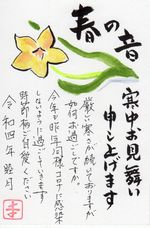 春の音
寒中お見舞い
申し上げます
厳しい寒さが続いておりますが
如何お過ごしですか。
今年も昨年同様コロナに感染
しないように過ごしていきます
時節柄ご自愛ください
令和四年睦月